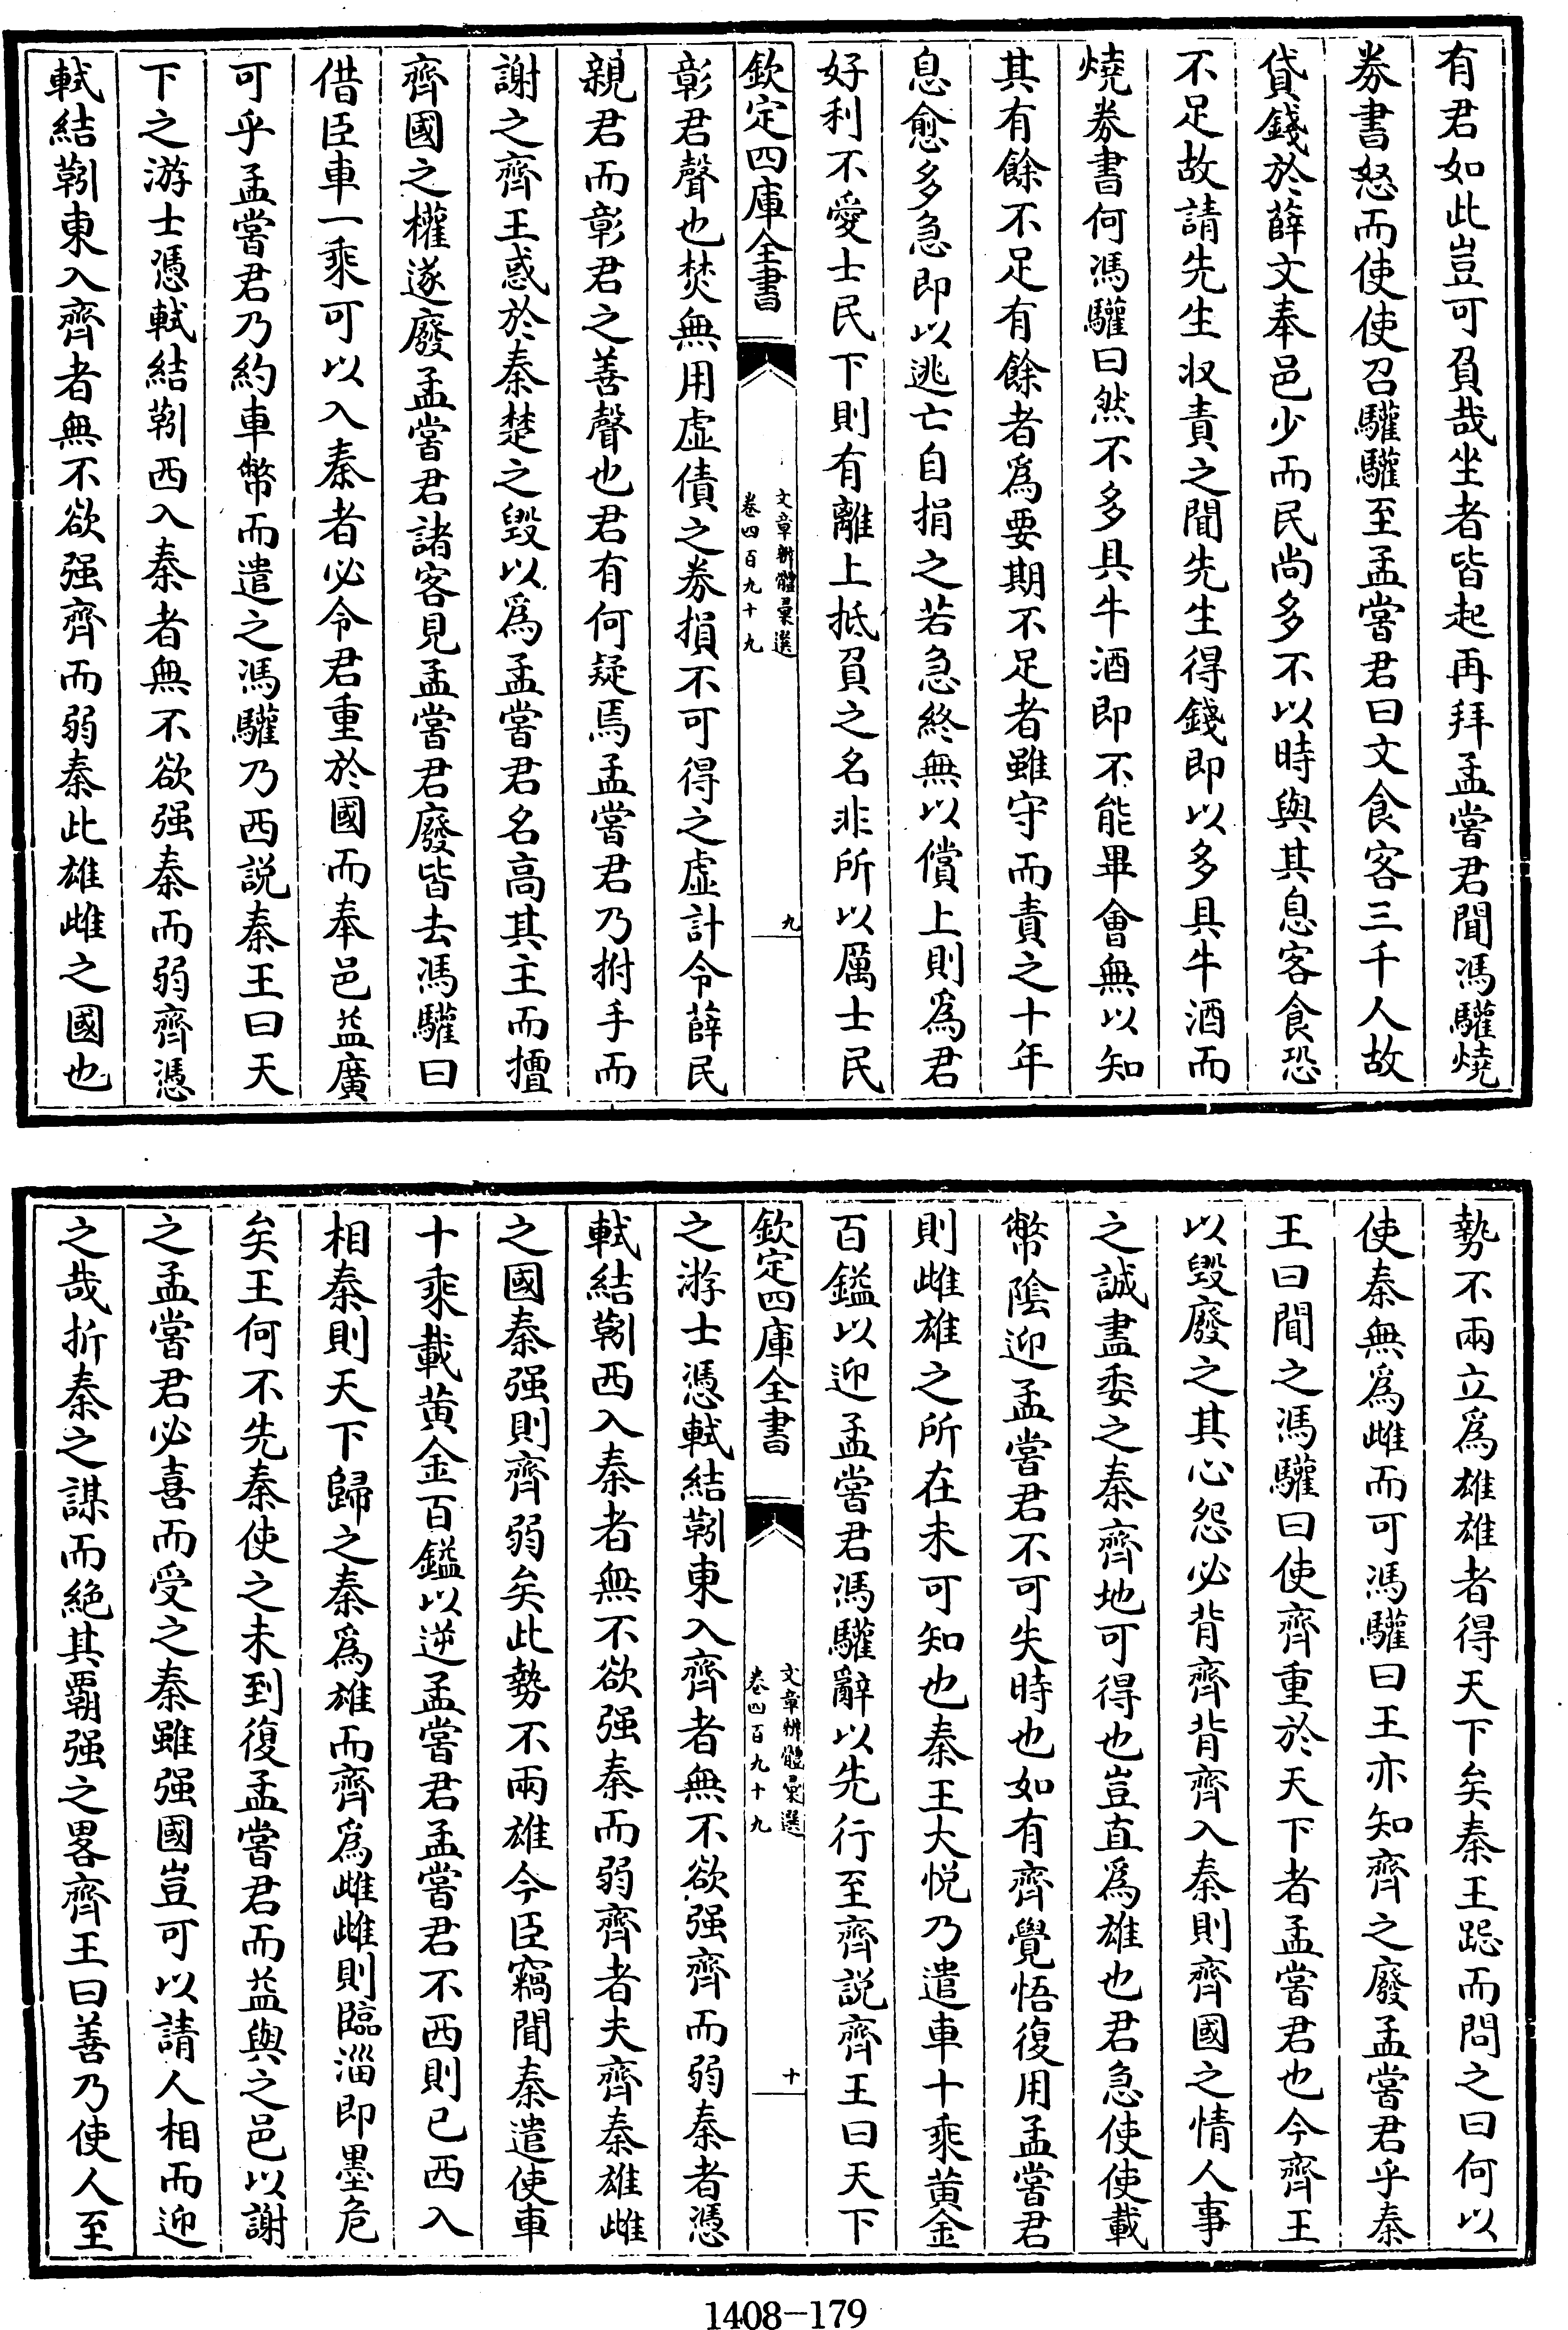 有君如此豈可負哉坐者皆起再拜孟嘗君聞馮驩燒
券書怒而使使召驩驩至孟嘗君曰文食客三千人故
貸錢於薛文奉邑少而民尚多不以時與其息客食恐
不足故請先生收責之聞先生得錢即以多具牛酒而
燒券書何馮驩曰然不多具牛酒即不能畢會無以知
其有餘不足有餘者爲要期不足者雖守而責之十年
息愈多急即以逃亡自捐之若急終無以償上則爲君
好利不愛士民下則有離上抵負之名非所以厲士民
欽定四庫全書
文章辨體彙選
卷四百九十九
九
彰君聲也焚無用虛債之券損不可得之虛計令薛民
親君而彰君之善聲也君有何疑焉孟嘗君乃拊手而
謝之齊王惑於秦楚之毀以爲孟嘗君名高其主而擅
齊國之權遂廢孟嘗君諸客見孟嘗君廢皆去馮驩曰
借臣車一乘可以入秦者必令君重於國而奉邑益廣
可乎孟嘗君乃約車幣而遣之馮驩乃西說秦王曰天
下之游士憑軾結靷西入秦者無不欲强秦而弱齊憑
軾結靷東入齊者無不欲强齊而弱秦此雄雌之國也
勢不兩立爲雄雄者得天下矣秦王跽而問之曰何以
使秦無爲雌而可馮驩曰王亦知齊之廢孟嘗君乎秦
王曰聞之馮驩曰使齊重於天下者孟嘗君也今齊王
以毀廢之其心怨必背齊背齊入秦則齊國之情人事
之誠盡委之秦齊地可得也豈直爲雄也君急使使載
幣陰迎孟嘗君不可失時也如有齊覺悟復用孟嘗君
則雌雄之所在未可知也秦王大悅乃遣車十乘黃金
百鎰以迎孟嘗君馮驩辭以先行至齊說齊王曰天下
欽定四庫全書
文章辨體彙選
卷四百九十九
十
之游士憑軾結靷東入齊者無不欲强齊而弱秦者憑
軾結靷西入秦者無不欲强秦而弱齊者夫齊秦雄雌
之國秦强則齊弱矣此勢不兩雄今臣竊聞秦遣使車
十乘載黃金百鎰以逆孟嘗君孟嘗君不西則已西入
相秦則天下歸之秦爲雄而齊爲雌雌則臨淄即墨危
矣王何不先秦使之未到復孟嘗君而益與之邑以謝
之孟嘗君必喜而受之秦雖强國豈可以請人相而迎
之哉折秦之謀而絕其霸强之畧齊王曰善乃使人至
1408-179